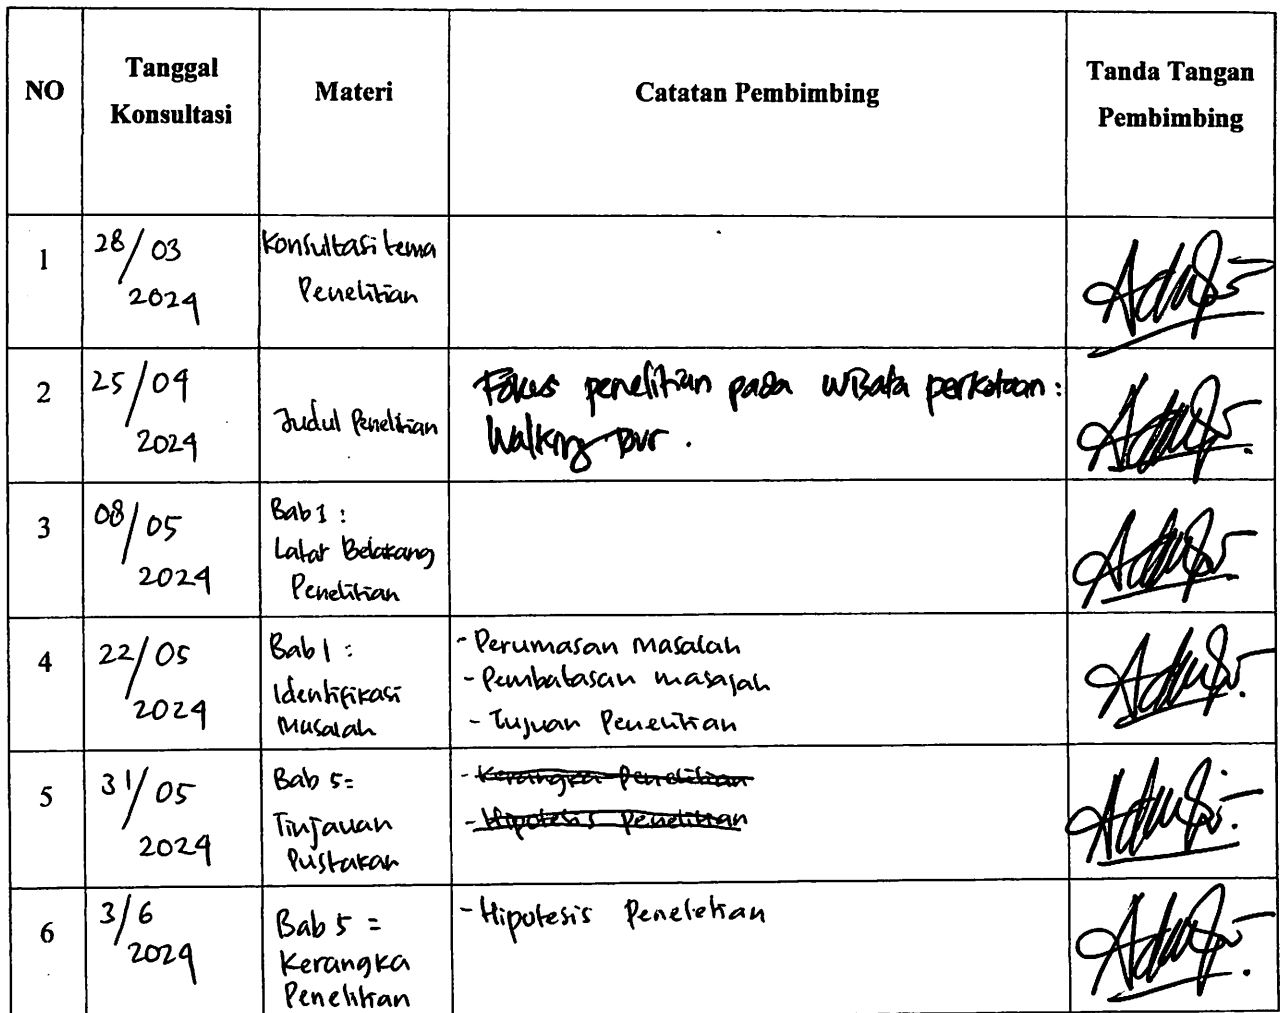 NO Tanggal Konsultasi Materi Catatan Pembimbing Tanda Tangan Pembimbing
1 28/03 2024 Konsultasi tema Penelitian
2 25/04 2024 Judul Penelitian Fokus penelitian pada wisata perkotaan: Walking tour.
3 08/05 2024 Bab 1: Latar Belakang Penelitian
4 22/05 2024 Bab 1: Identifikasi Masalah
- Perumasan Masalah
- Pembatasan masalah
- Tujuan Penelitian
5 31/05 2024 Bab 5= Tinjauan Pustakan
- Kerangka Penelitian
- Hipotesis Penelitian
6 3/6 2024 Bab 5= Kerangka Penelitian
- Hipotesis Peneletian